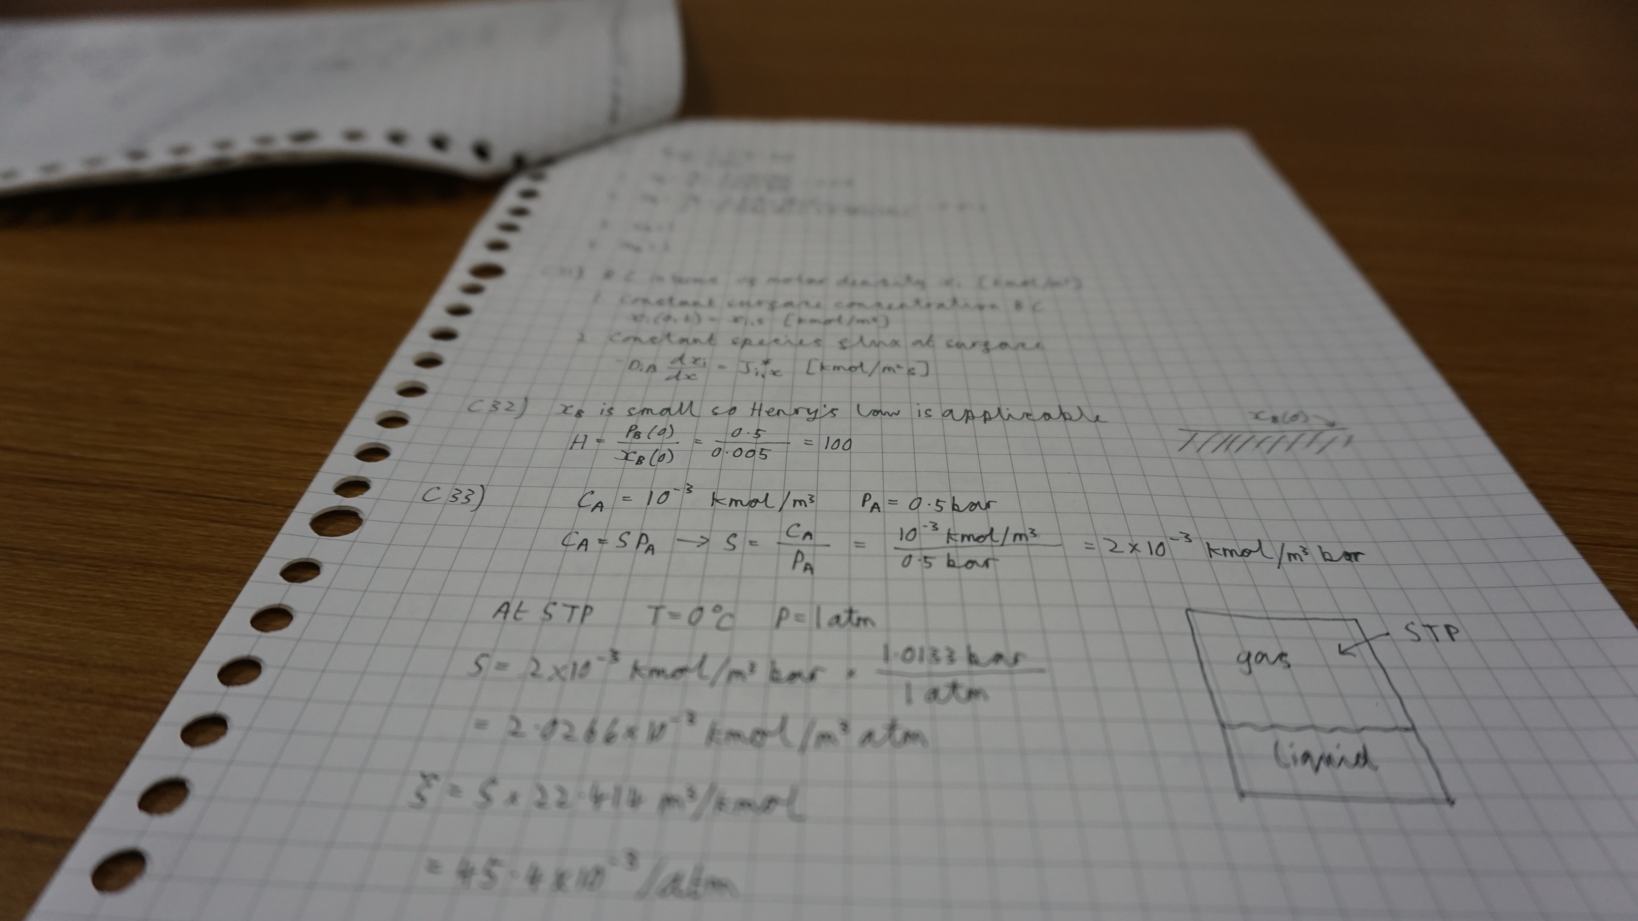 C31) B.C in terms of molar density xi [kmol/m³]
1 Constant surface concentration BC
xi(0,t) = xi,s [kmol/m³]
2 Constant species flux at surface
-DiA dxi/dx = Ji,x* [kmol/m²s]
C32) xB is small so Henry's law is applicable
H = PB(0)/xB(0) = 0.5/0.005 = 100
xB(0)
C33) CA = 10⁻³ kmol/m³ PA = 0.5 bar
CA = SPA → S = CA/PA = 10⁻³ kmol/m³/0.5 bar = 2×10⁻³ kmol/m³ bar
At STP T=0°C P=1atm
S = 2×10⁻³ kmol/m³ bar · 1.0133 bar/1 atm
= 2.0266×10⁻³ kmol/m³ atm
STP
gas
liquid
ξ = S × 22.414 m³/kmol
= 45.4×10⁻³/atm